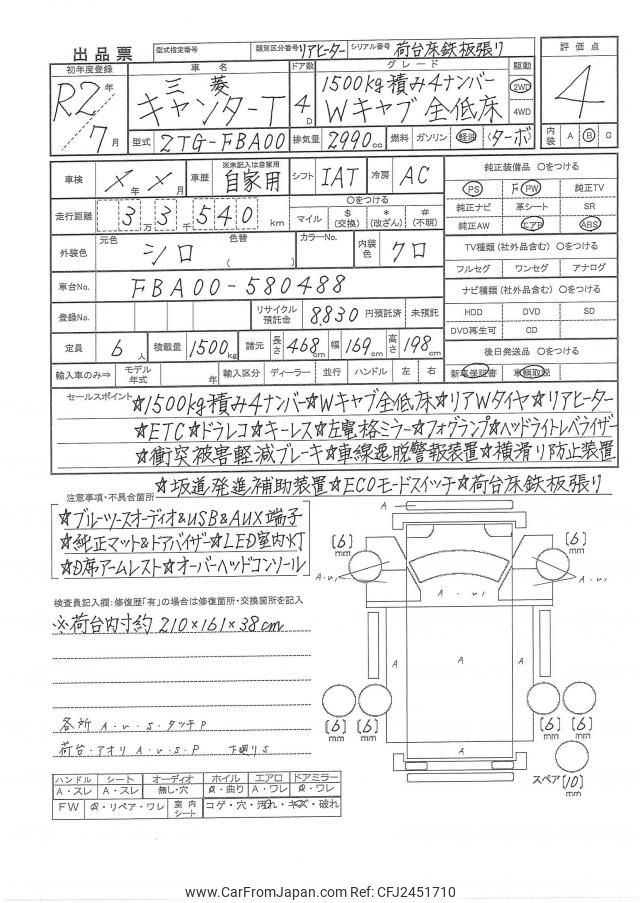 出品票 型式指定番号 類別区分番号 リアヒーター シリアル番号 荷台床鉄板張り
初年度登録 車名 ドア数 グレード 駆動 評価点
R2年 三菱 1500kg積み4ナンバー 2WD 4
7月 キャンターT 4D Wキャブ全低床 4WD
型式 2TG-FBA00 排気量 2990cc 燃料 ガソリン 軽油 (ターボ 内装 A B C
車検 X年 X月 車歴 ※未記入は自家用 自家用 シフト IAT 冷房 AC
純正装備品 ○をつける
PS PW 純正TV
純正ナビ 革シート SR
純正AW エアB ABS
走行距離 33万千540km ○をつける
マイル $(交換) *(改ざん) #(不明)
外装色 元色 シロ 色替 ( ) カラーNo. 内装色 クロ
TV種類(社外品含む) ○をつける
フルセグ ワンセグ アナログ
車台No. FBA00-580488
ナビ種類(社外品含む) ○をつける
登録No. リサイクル預託金 8830 円預託済 未預託
HDD DVD SD
DVD再生可 CD
定員 6人 積載量 1500kg 諸元 長さ 468cm 幅 169cm 高さ 198cm
後日発送品 ○をつける
輸入車のみ⇒ モデル年式 年 輸入区分 ディーラー 並行 ハンドル 左 右 新車保証書 車輌取説
セールスポイント ☆1500kg積み4ナンバー☆Wキャブ全低床☆リアWタイヤ☆リアヒーター
☆ETC☆ドラレコ☆キーレス☆左電格ミラー☆フォグランプ☆ヘッドライトレベライザー
☆衝突被害軽減ブレーキ☆車線逸脱警報装置☆横滑り防止装置
☆坂道発進補助装置☆ECOモードスイッチ☆荷台床鉄板張り
注意事項・不具合箇所
☆ブルーツースオーディオ&USB&AUX端子
☆純正マット&ドアバイザー☆LED室内灯
☆D席アームレスト☆オーバーヘッドコンソール
検査員記入欄:修復歴「有」の場合は修復箇所・交換箇所を記入
※荷台内寸約210×161×38cm
各所 A・U・S・タッチP
荷台・アオリ A・U・S・P 下廻りS
A
[6]mm [6]mm
A・U1 A・U1 A・U1
A A A
[6]mm [6]mm [6]mm [6]mm
A
スペア [10]mm
ハンドル シート オーディオ ホイル エアロ ドアミラー
A・スレ A・スレ 無し・穴 曲り A・ワレ ワレ
FW リペア・ワレ 室内シート コゲ・穴・汚れ・キズ・破れ
www.CarFromJapan.com Ref: CFJ2451710